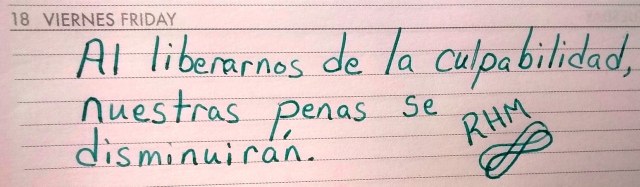 18 VIERNES FRIDAY
Al liberarnos de la culpabilidad,
nuestras penas se
disminuirán.
RHM